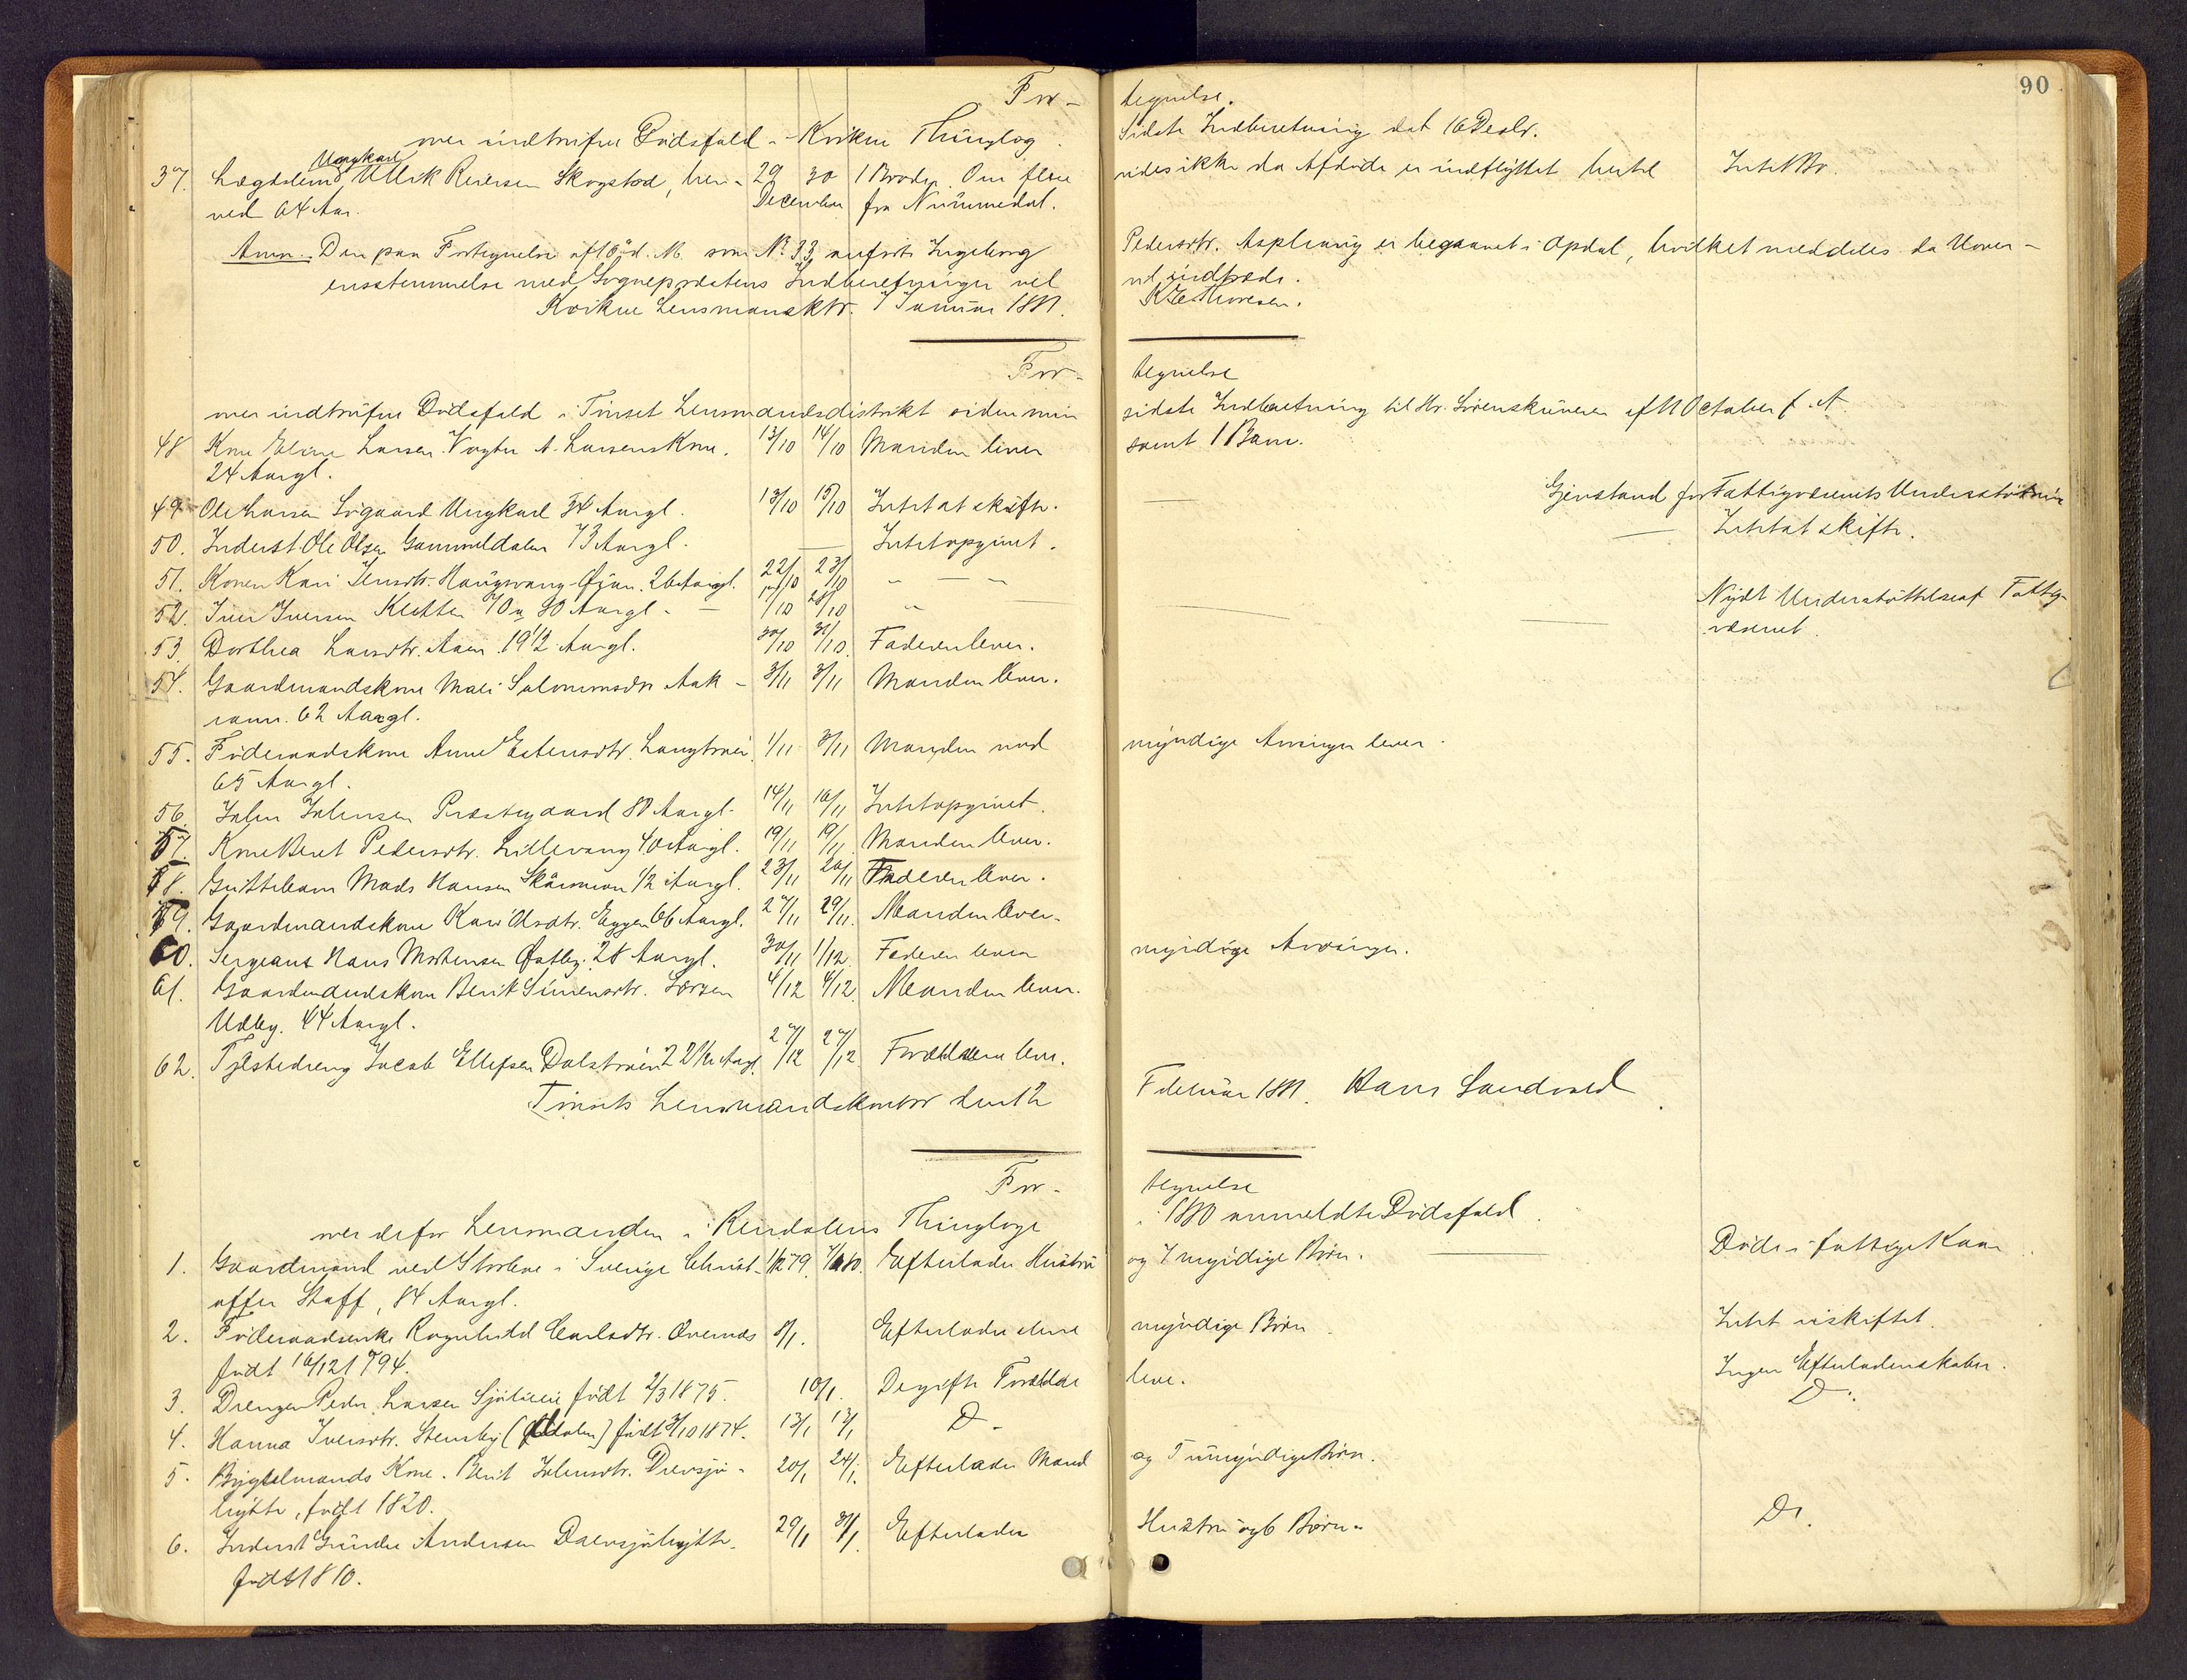 90
For- tegnelse.
over indtrufne Dödsfald i Kvikne Thinglag. Sidste Indberetning dat 16 Decbr.
Ungkarl
37. Lægdslem Ullrik Reiersen Skogstad, hen- 29 30 1 Broder. Om flere vides ikke da Afdøde er indflyttet hertil Intet Bo.
ved 64 Aar. December fra Nummedal.
Anm. Den paa Fortegnelse af 16 d. M. som No 33 anførte Ingeborg Pedersdtr. Asphaug er begravet i Opdal, hvilket meddeles da Uover-
ensstemmelse med Sognepræstens Indberetninger vel vil indtræde.
Kvikne Lensmansktr. 7 Januar 1881.
For- tegnelse
over indtrufne Dödsfald i Tönset Lensmandsdistrikt siden min sidste Indberetning til Hr. Sörenskriveren af 11 October f. A.
48 Kone Eline Larsen. Vogter A. Larsens Kone. 13/10 14/10 Manden lever samt 1 Barn.
24 Aargl.
49 Ole Larsen Sögaard Ungkarl 34 Aargl. 13/10 15/10 Intet at skifte. — Gjenstand for Fattigvæsenets Understøttelse
50. Inderst Ole Olsen Gammeldalen 73 Aargl. — Intet opgivet. — Intet at skifte.
51. Konen Kari Jensdtr. Haugsvang-Öian. 26 Aargl. 22/10 23/10 " — "
52. Iver Iversen Kletten 70 a 80 Aargl. — 17/10 28/10 " — Nydt Understøttelse af Fattig-
væsenet.
53. Dorthea Larsdtr. Aaen 19 1/2 Aargl. 30/10 31/10. Faderen lever.
54. Gaardmandskone Mali Salomonsdtr Aak- 3/11 3/11 Manden lever.
rann. 62 Aargl.
55. Föderaadskone Anne Estensdtr. Langtröen. 1/11 3/11 Manden med myndige Arvinger lever.
65 Aargl.
56. John Johnsen Præstegaard 80 Aargl. 14/11 16/11 Intet opgivet.
57. Kone Beret Pedersdtr. Lillevang 40 Aargl. 19/11 19/11 Manden lever.
58. Guttebarn Mads Hansen 1/2 Aargl. 23/11 26/11 Faderen lever.
59. Gaardmandskone Kari Olsdtr. Eggen 66 Aargl. 27/11 29/11. Manden lever.
60. Sergeant Hans Mortensen Östby. 28 Aargl. 30/11 1/12. Faderen lever myndige Arvinger.
61. Gaardmandskone Berit Simensdtr. Udby. 44 Aargl. 4/12 4/12. Manden lever.
62. Tjenestedreng Jacob Ellefsen Dalströen 22 1/2 Aargl. 27/12 27/12 Forældrene lever.
Tönsets Lensmandskontor den 12 Februar 1881. Hans Sandvold
For- tegnelse
over de for Lensmanden i Rendalens Thinglage i 1880 anmeldte Dödsfald.
1. Gaardmand ved Storbove i Sverige Christ- Efterlader Hustru og 7 myndige Börn. — Döde i fattige Kaar.
offer Staff, 84 Aargl.
2. Föderaadsenke Ragnhild Carlsdtr. Övernæs 8/1. Efterlader myndige Börn. Intet i skiftet.
födt 16/12 1794.
3. Drengen Peder Larsen Sjölieie födt 2/3 1875. 10/1. Degifte Forældre leve. Ingen Efterladenskaber.
4. Hanna Iversdtr. Stensby födt 3/10 1874. 13/1 17/1 Do. Do.
5. Bygselmands Kone. Berit Johnsdtr. Drevsjö- 20/1 24/1. Efterlader Mand og Börn.
hytte, födt 1820.
6. Inderst Gunder Andersen Drevsjöhytte. 29/1 31/1. Efterlader Hustru og 6 Börn. Do.
födt 1810.